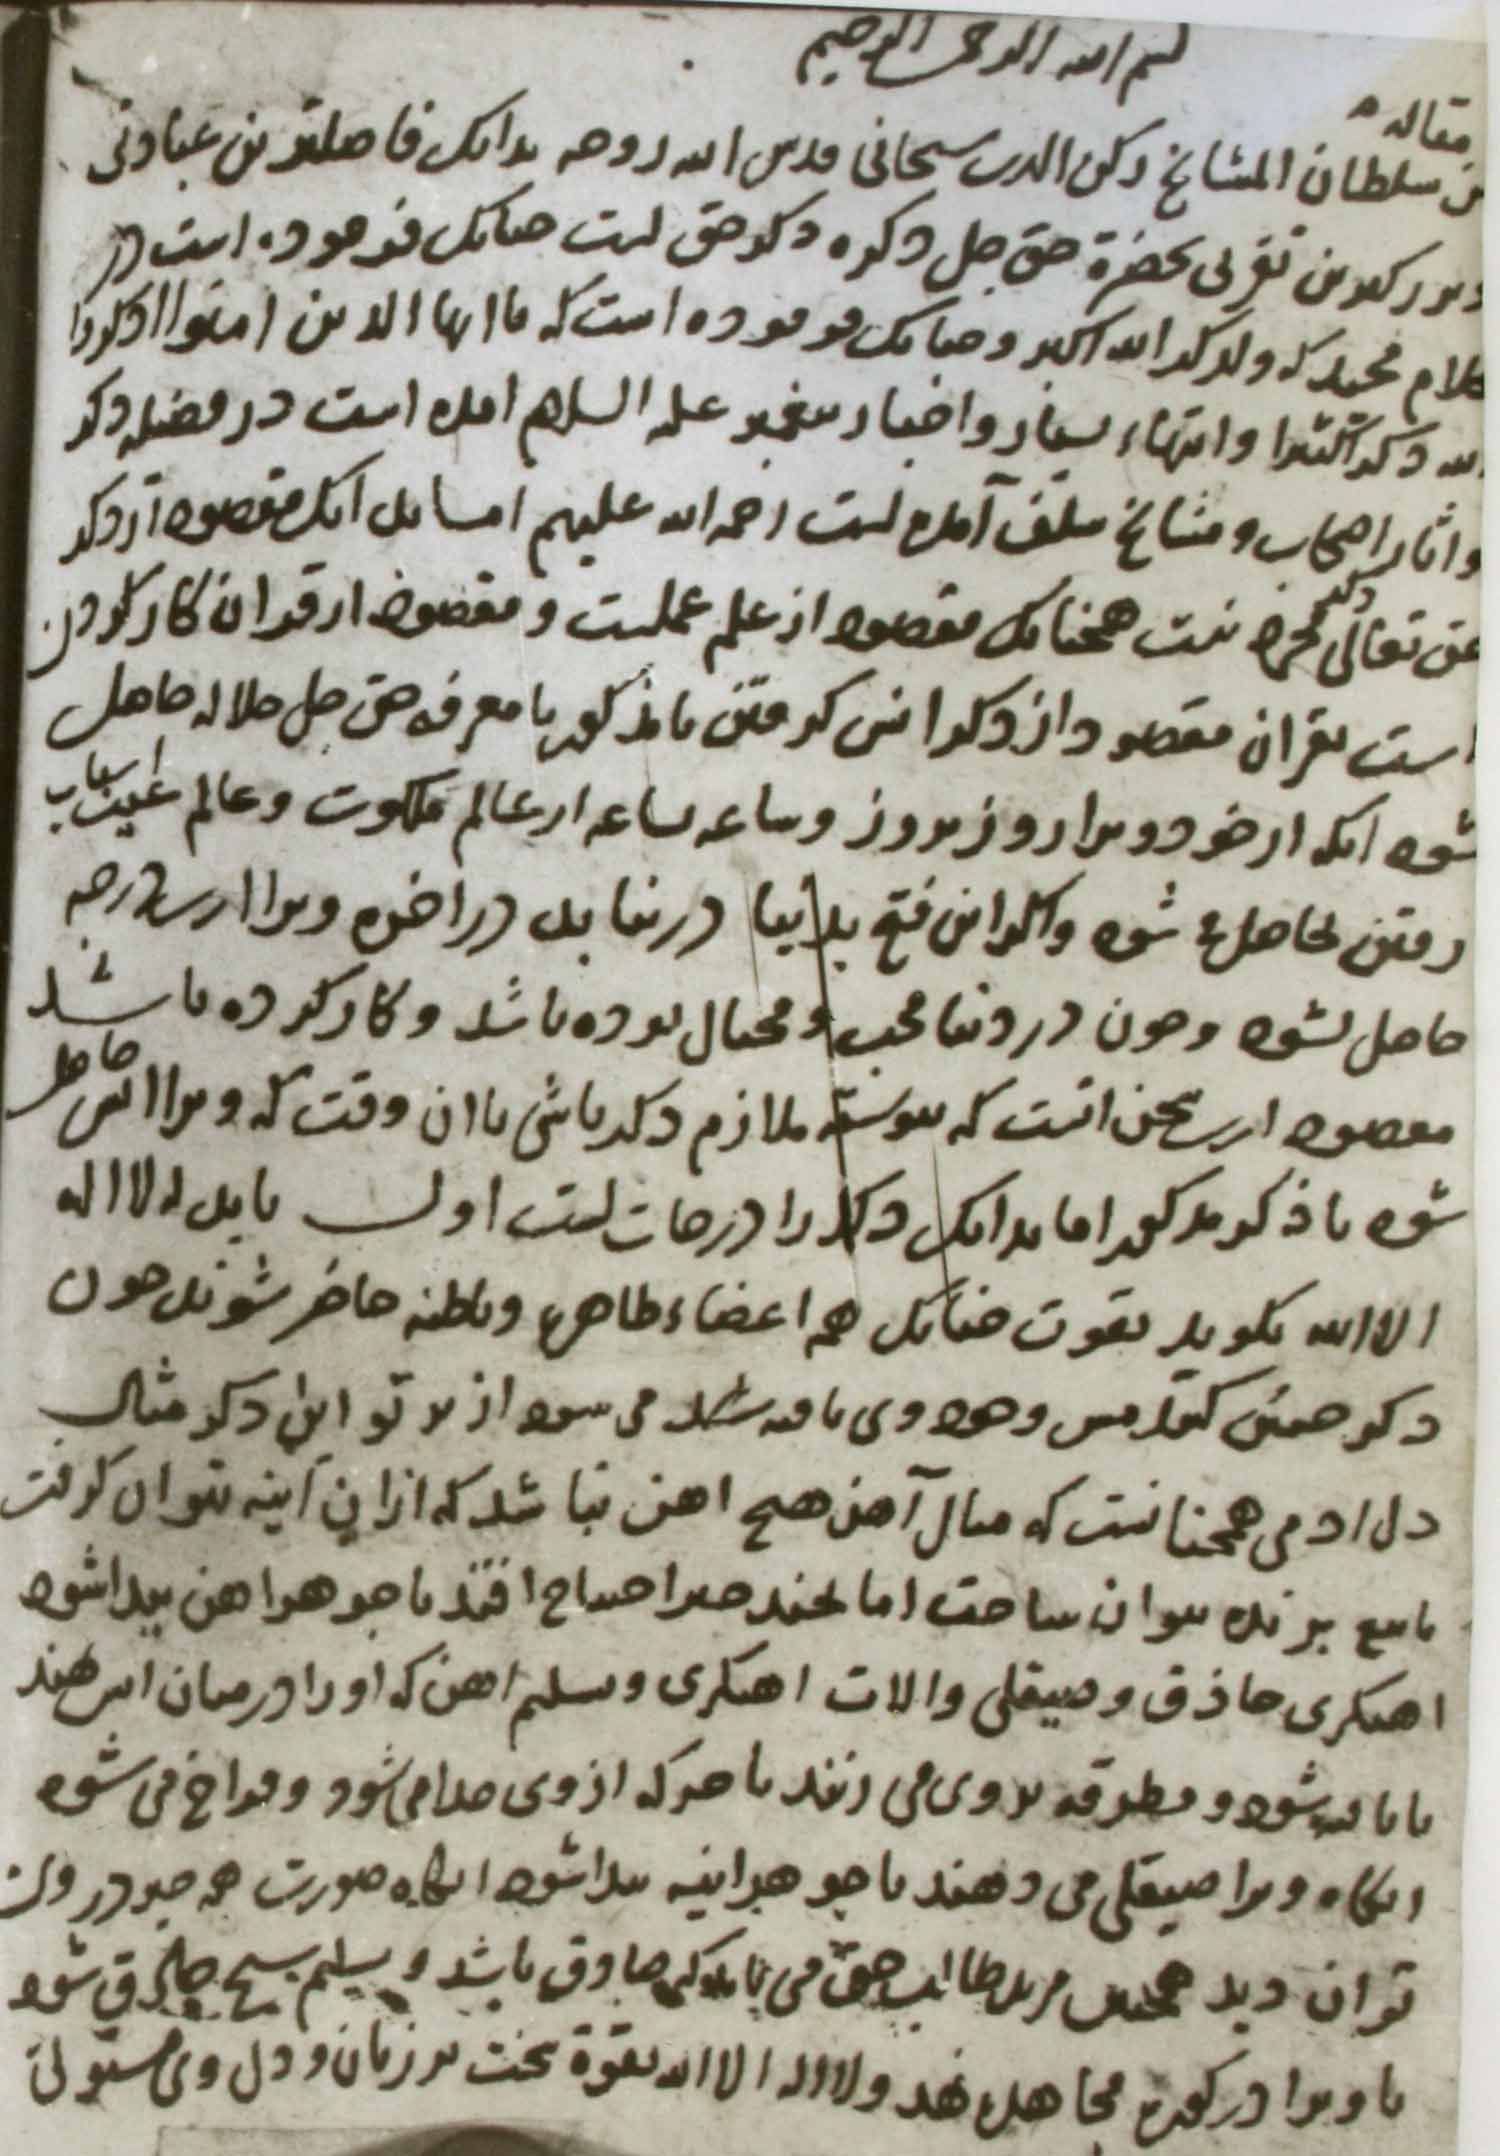 بسم الله الرحمن الرحیم
مقاله
من سلطان المشایخ رکن الدین سنجانی قدس الله روحه بدانک فاضلترین عبادتی
و بزرکترین تقربی بحضرة حق جل ذکره ذکر حق است چنانک فرموده است در
کلام مجید که ولذکر الله اکبر و چنانک فرموده است که یا ایها الذین امنوا اذکروا
الله ذکرا کثیرا و ایتهاء بسیار و اخبار پیغمبر علیه السلام امده است در فضیله ذکر
و اثار اصحاب و مشایخ سلف آمده است رحمه الله علیهم اما بدانک مقصود از ذکر
حق تعالی ذکر مجرد نیست همچنانک مقصود از علم عملست و مقصود از قران کار کردن
است بقران مقصود از ذکر انس کرفتن با مذکور تا معرفه حق جل جلاله حاصل
شود انکه از خود ویرا روز بروز و ساعه بساعه از عالم ملکوت و عالم غیب اسباب
رفتن بحاصل شود و اکر این فتح بدنیا در نیابد در اخره ویرا این درجه
حاصل شود و چون در دنیا محب و محتال بوده باشد و کار کرده باشد
مقصود ازین سخن انست که پیوسته ملازم ذکر باشی تا ان وقت که ویرا انس حاصل
شود با ذکر مذکور اما بدانک ذکر را درجات است اول باید که لا اله
الا الله بکوید بقوت چنانک همه اعضاء ظاهره و باطنه حاضر شوند چون
ذکر چنین کوید مس وجود وی تافته شد می شود از پرتو این ذکر مثال
دل ادمی همچنانست که مثال آهن هیچ اهن نباشد که ازان آینه نتوان کرفت
یا تیغ برنده نتوان ساخت اما بچند چیز احتیاج افتد تا جوهر اهن پیدا شود
اهنکری حاذق و صیقلی و الات اهنکری و تسلیم اهن که او را در میان اتش نهند
تا تافته شود و مطرقه بر وی می زنند تا هرکه از وی جدا می شود و فراخ می شود
انکاه ویرا صیقلی می دهند تا جوهر اینه پیدا شود انکاه صورت همه چیز در وی
توان دید همچنین مرید طالب حق می باید که صادق باشد و تسلیم شیخ حاذق شود
تا ویرا در کوره مجاهده نهد و لا اله الا الله بقوة سخت بر زبان و دل وی مستولی